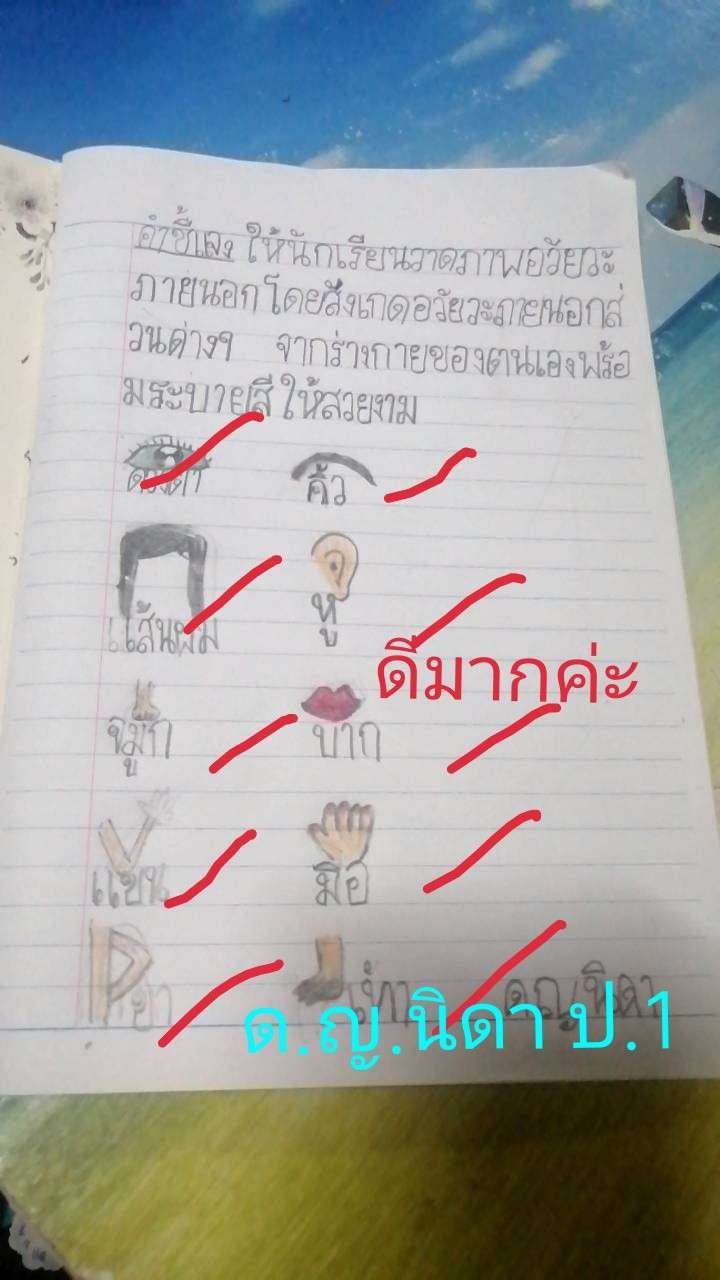 คำชี้แจง ให้นักเรียนวาดภาพอวัยวะ
ภายนอกโดยสังเกตอวัยวะภายนอกส่
วนต่างๆ จากร่างกายของตนเองพร้อ
มระบายสีให้สวยงาม
ดวงตา คิ้ว
เส้นผม หู
ดีมากค่ะ
จมูก ปาก
แขน มือ
ขา เท้า ด.ญ.นิดา
ด.ญ.นิดา ป.1